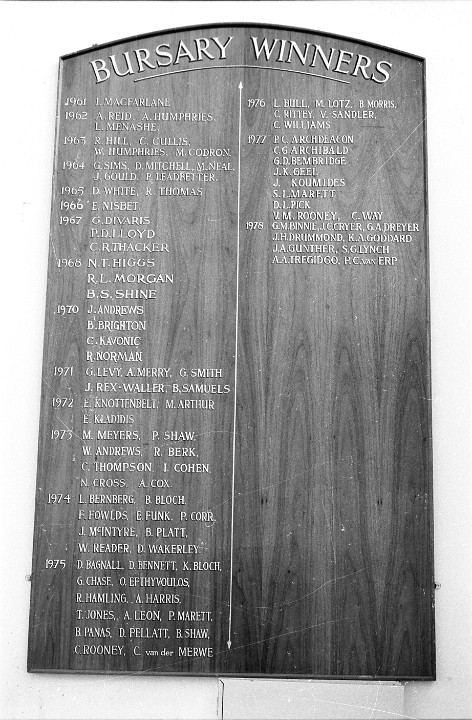 BURSARY WINNERS
1961 I. MACFARLANE
1962 A. REID, A. HUMPHRIES,
L. MENASHE,
1963 R. HILL, C. CULLIS,
W. HUMPHRIES, M. CODRON,
1964 G. SIMS, D. MITCHELL, M. NEAL,
J. GOULD, P. LEADBETTER,
1965 D. WHITE, R. THOMAS
1966 E. NISBET
1967 G. DIVARIS
P.D. LLOYD
C.R. THACKER
1968 N.T. HIGGS
R.L. MORGAN
B.S. SHINE
1970 J. ANDREWS
B. BRIGHTON
C. KAVONIC
R. NORMAN
1971 G. LEVY, A. MERRY, G. SMITH
J. REX-WALLER, B. SAMUELS
1972 E. KNOTTENBELT, M. ARTHUR
E. KLADIDIS
1973 M. MEYERS, P. SHAW,
W. ANDREWS, R. BERK,
C. THOMPSON, I. COHEN,
N. CROSS, A. COX.
1974 L. BERNBERG, B. BLOCH,
F. FOWLDS, E. FUNK, P. CORR,
J. McINTYRE, B. PLATT,
W. READER, D. WAKERLEY
1975 D. BAGNALL, D. BENNETT, K. BLOCH,
G. CHASE, O. EFTHYVOULOS,
R. HAMLING, A. HARRIS,
T. JONES, A. LEON, P. MARETT,
B. PANAS, D. PELLATT, B. SHAW,
C. ROONEY, C. van der MERWE
1976 L. BULL, M. LOTZ, B. MORRIS,
C. RITEY, V. SANDLER,
C. WILLIAMS
1977 P.C. ARCHDEACON
C.G. ARCHIBALD
G.D. BEMBRIDGE
J.K. GEEL
J. KOUMIDES
S.I. MARETT
D.L. PICK
V.M. ROONEY, C. WAY
1978 G.M. BINNIE, J.C. CRYER, G.A. DREYER
J.H. DRUMMOND, K.A. GODDARD
J.A. GUNTHER, S.G. LYNCH
A.A. TREGIDGO, P.C. van ERP